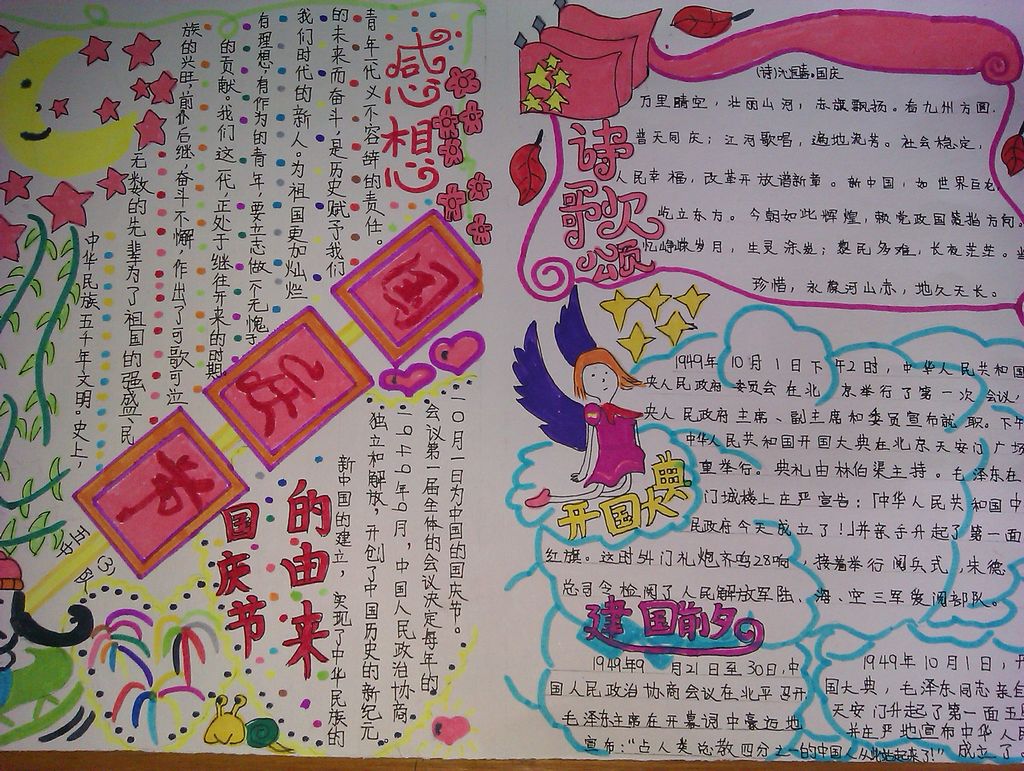 感想
中华民族五千年文明。史上,
无数的先辈为了祖国的强盛、民
族的兴旺,前卜后继,奋斗不懈,作出了可歌可泣
的贡献。我们这一代,正处于继往开来的时期。
有理想,有作为的青年,要立志做一个无愧于
我们时代的新人。为祖国更加灿烂
的未来而奋斗,是历史赋予了我们
青年一代义不容辞的责任。
国
庆
节
五中队
(3)
国庆节
的由来
一〇月一日为中国的国庆节。
会议第一届全体的会议决定每年的
一九四九年9月,中国人民政治协商
独立和解放,开创了中国历史的新纪元。
新中国的建立,实现了中华民族的
诗歌颂
国庆
万里晴空,壮丽山河,赤旗飘扬。看九州方圆,
普天同庆;江河歌唱,遍地流芳。社会稳定,
人民幸福,改革开放谱新章。新中国,如世界巨龙
屹立东方。今朝如此辉煌,赖党政国策指方向。
忆峥嵘岁月,生灵涂炭;黎民多难,长夜茫茫。
珍惜,永葆河山赤,地久天长。
开国大典
1949年10月1日下午2时,中华人民共和国
央人民政府委员会在北京举行了第一次会议,
央人民政府主席、副主席和委员宣布就职。下午
中华人民共和国开国大典在北京天安门广场
重举行。典礼由林伯渠主持。毛泽东在
门城楼上庄严宣告:「中华人民共和国中
民政府今天成立了!」并亲手升起了第一面
红旗。这时54门礼炮齐鸣28响,接着举行阅兵式,朱德
总司令检阅了人民解放军陆、海、空三军受阅部队。
建国前夕
1949年9月21日至30日,中
国人民政治协商会议在北平召开
毛泽东主席在开幕词中豪迈地
宣布:"占人类总数四分之一的中国人从此站起来了!"
1949年10月1日,开
国大典,毛泽东同志亲自
天安门升起了第一面五星
并庄严地宣布中华人民
成立了